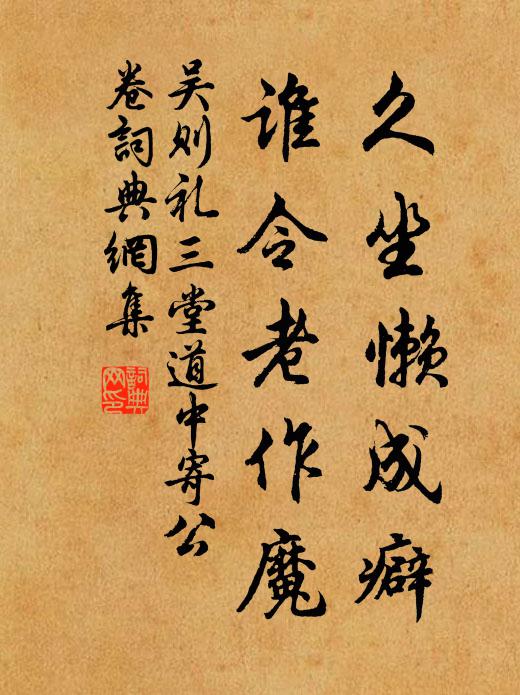 久坐懒成癖
谁令老作魔
吴则礼三堂道中寄公
卷詞典網集
詞典网印